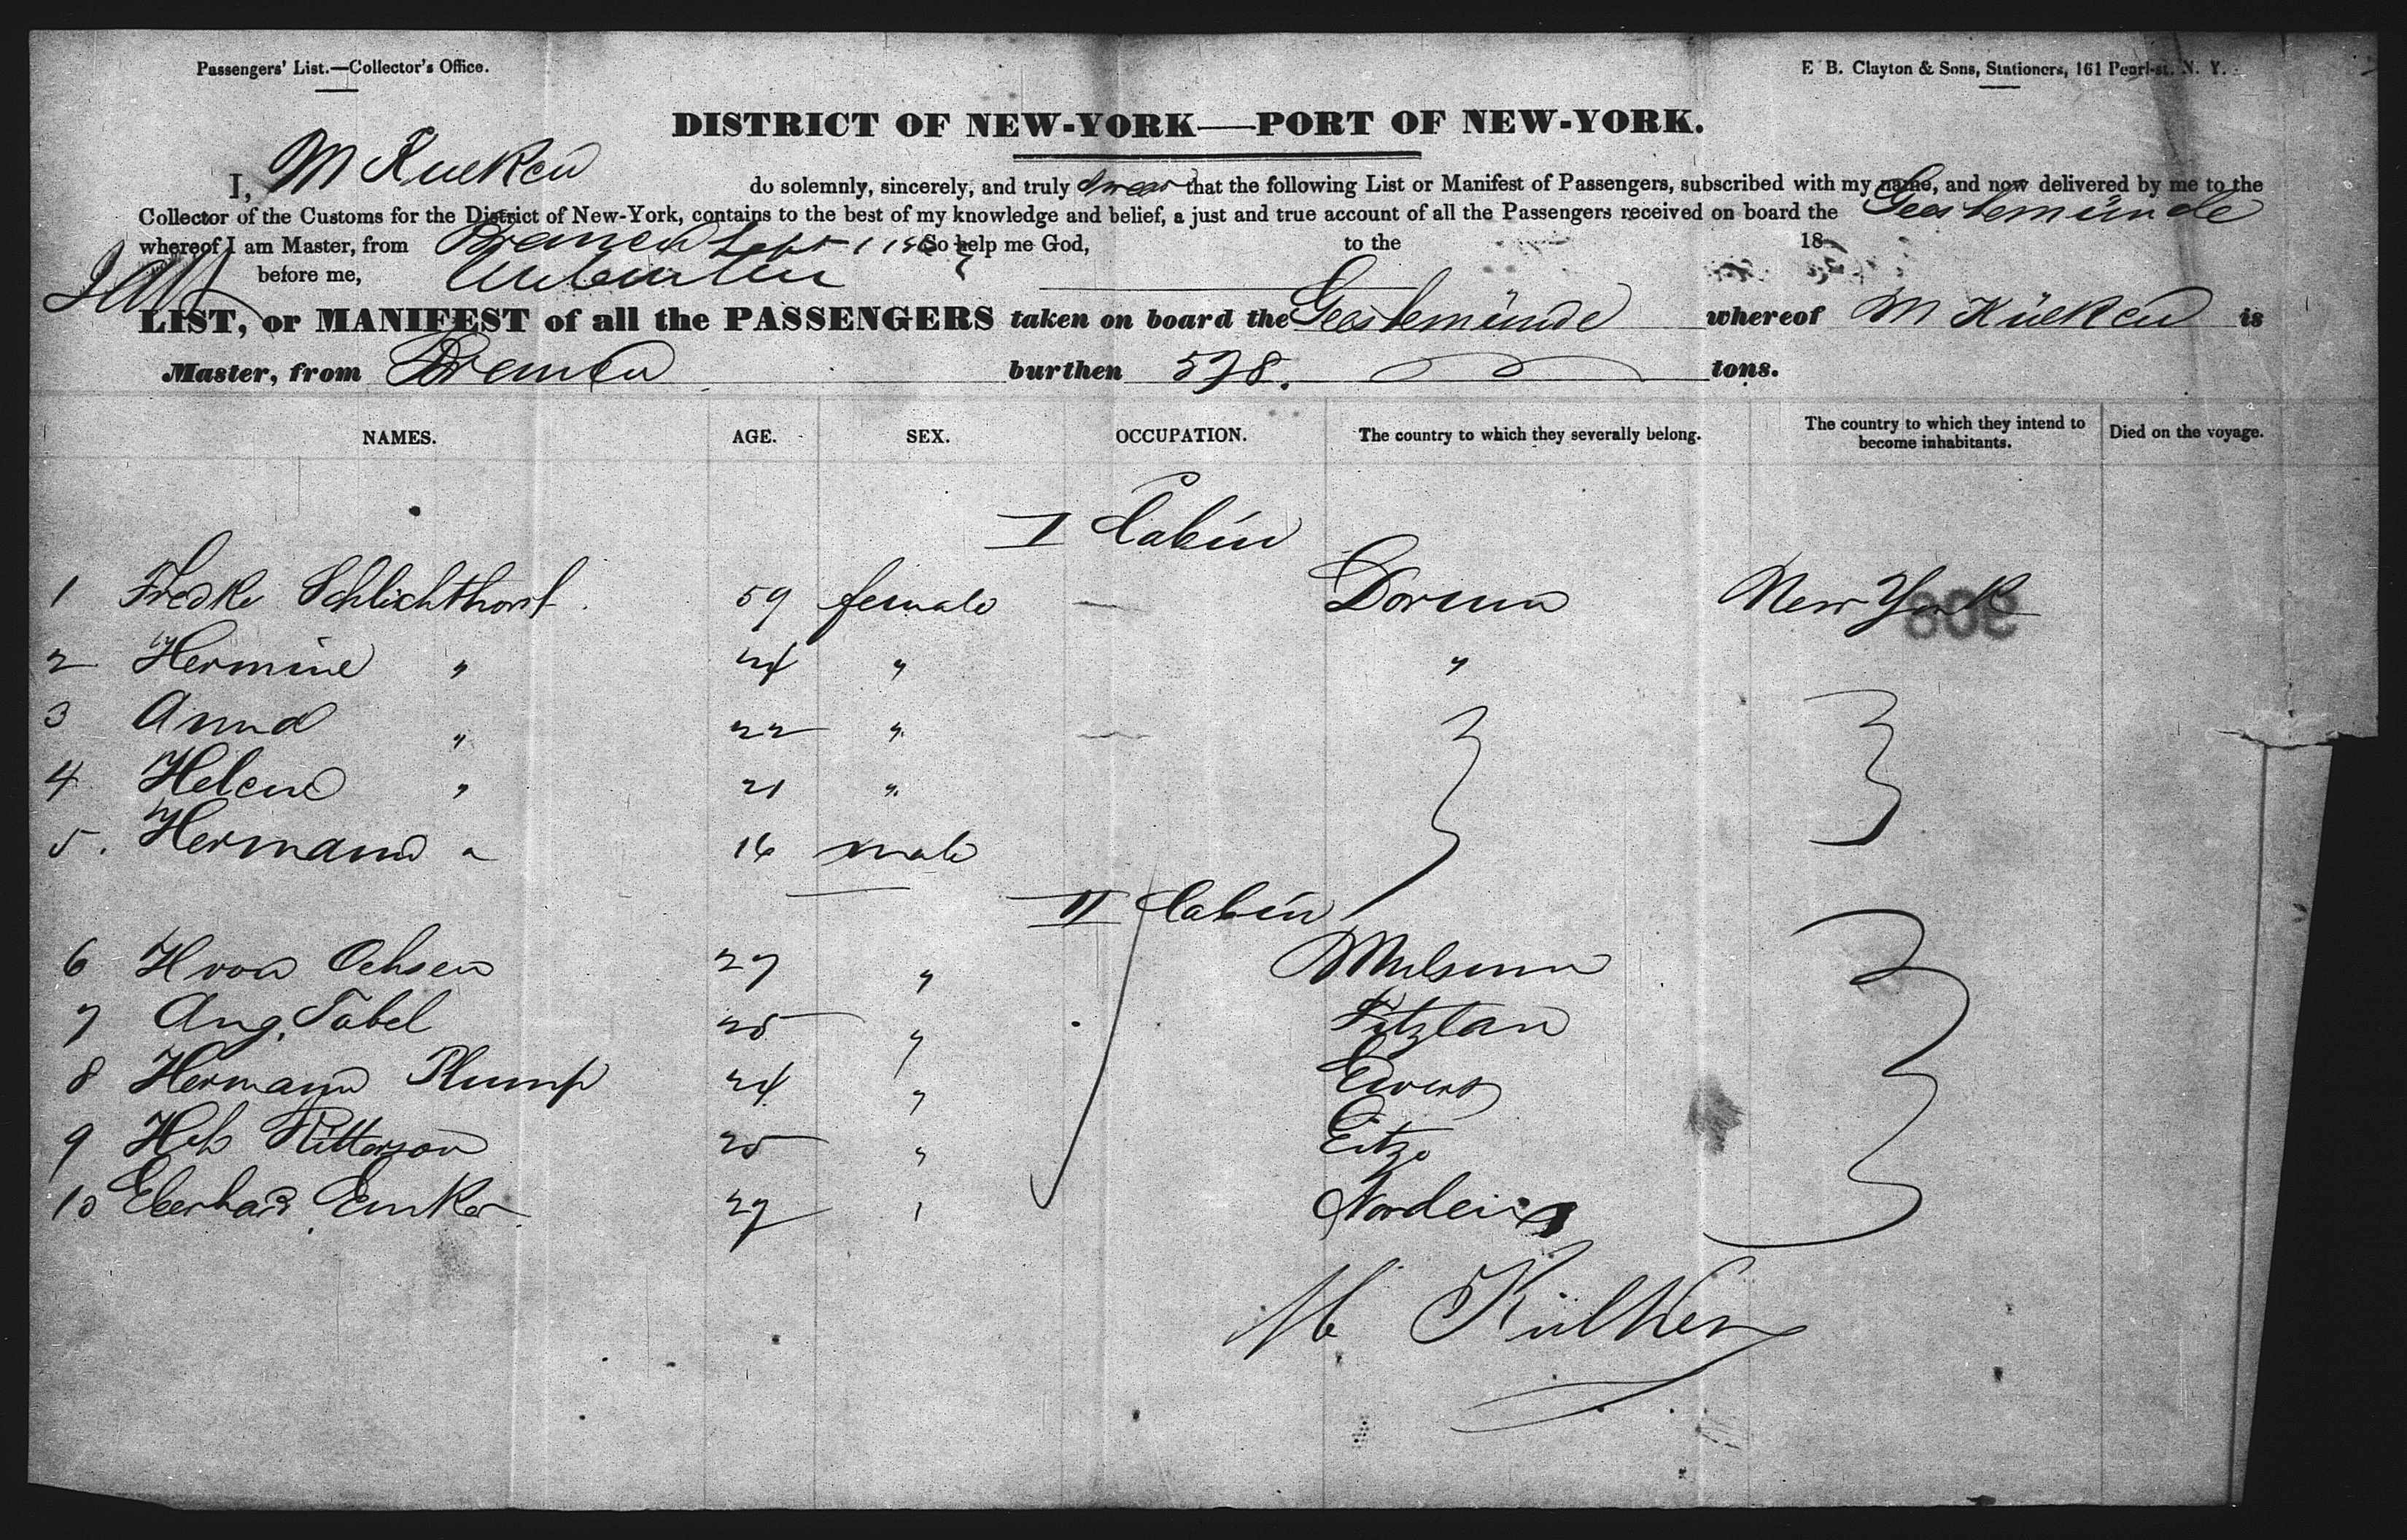 Passengers' List.—Collector's Office.
E B. Clayton & Sons, Stationers, 161 Pearl-st. N. Y.
DISTRICT OF NEW-YORK—PORT OF NEW-YORK.
I, M Kücken do solemnly, sincerely, and truly swear that the following List or Manifest of Passengers, subscribed with my name, and now delivered by me to the
Collector of the Customs for the District of New-York, contains to the best of my knowledge and belief, a just and true account of all the Passengers received on board the Geestemünde
whereof I am Master, from Bremen Sept 1 So help me God, to the 18
before me,
LIST, or MANIFEST of all the PASSENGERS taken on board the Geestemünde whereof M Kücken is
Master, from Bremen burthen 578. tons.
NAMES. AGE. SEX. OCCUPATION. The country to which they severally belong. The country to which they intend to become inhabitants. Died on the voyage.
I Cabin
1 Fredke Schlichthorst 59 female — Dorum New York
308
2 Hermine " 24 " "
3 Anna " 22 " —
4 Helene " 21 "
5. Hermann " 16 male
II Cabin
6 H von Oehsen 27 " Mulsum
7 Aug. Tabel 25 "
8 Hermann Plump 24 "
9 Hch Ritterson 25 " Eitze
10 Eberhard 27 "
M Külken